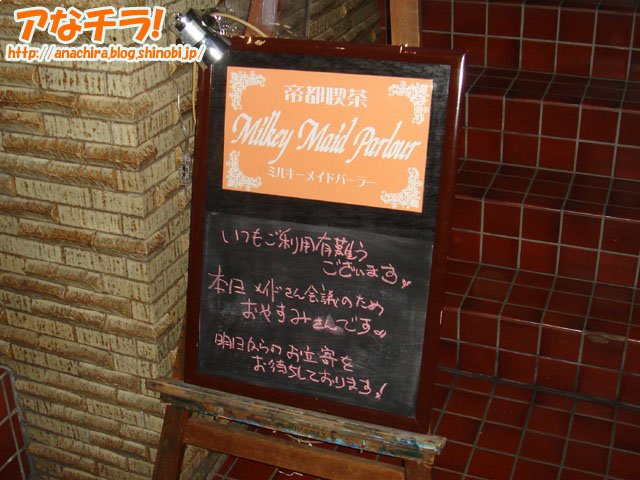 アなチラ!
http://anachira.blog.shinobi.jp/
帝都喫茶
Milkey Maid Parlour
ミルキーメイドパーラー
いつもご利用有難う
ございます
本日メイドさん会議のため
おやすみさんです
明日からのお立寄を
お待ちしております!